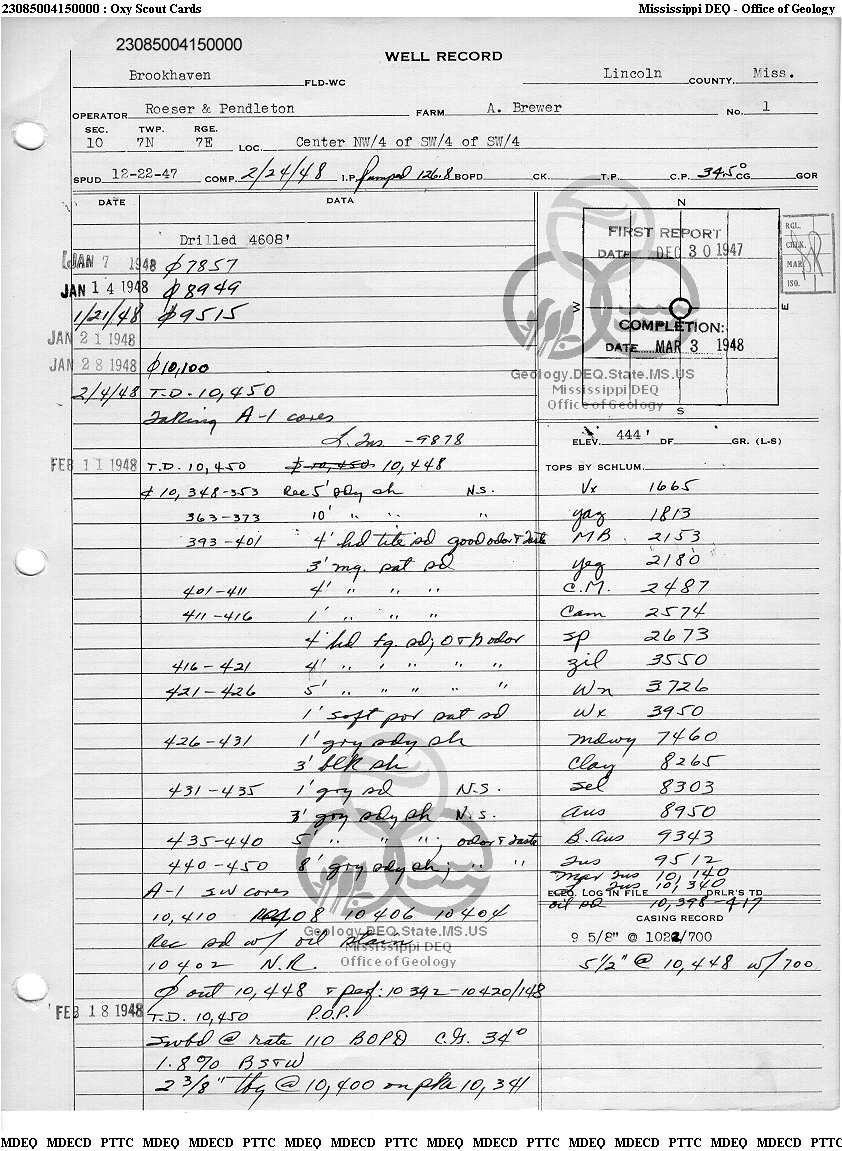 23085004150000 : Oxy Scout Cards Mississippi DEQ - Office of Geology
23085004150000
WELL RECORD
Brookhaven FLD-WC Lincoln COUNTY, Miss.
OPERATOR Roeser & Pendleton FARM A. Brewer No. 1
SEC. TWP. RGE.
10 7N 7E LOC. Center NW/4 of SW/4 of SW/4
SPUD. 12-22-47 COMP. 2/24/48 I.P. Pumped 126.8 BOPD CK. T.P. C.P. 34.5° CG GOR
DATE DATA
Drilled 4608'
JAN 7 1948 ∅ 7857
JAN 14 1948 ∅ 8949
1/21/48 ∅ 9515
JAN 21 1948
JAN 28 1948 ∅ 10,100
2/4/48 T.D. 10,450
Taking A-1 cores
L. Tus. -9878
FEB 11 1948 T.D. 10,450 10,448
10,348-353 Rec 5' sdy sh N.S.
363-373 10' " " "
393-401 4' hd tite sd good odor & taste
3' mg. sat sd
401-411 4' " " "
411-416 1' " " "
4' hd fg. sd; odor
416-421 4' " " " " "
421-426 5' " " " " "
1' soft por sat sd
426-431 1' gry sdy sh
3' blk sh
431-435 1' gry sd N.S.
3' gry sdy sh N.S.
435-440 5' " " "; odor & taste
440-450 8' gry sdy sh; " "
A-1 SW cores
10,410 08 10406 10404
Rec sd w/ oil stain
10402 N.R.
∅ out 10,448 & perf: 10392-10420/148
FEB 18 1948 T.D. 10,450 P.O.P.
Swbd @ rate 110 BOPD C.G. 34°
1.8% BS&W
2 3/8" tbg @ 10,400 on pkr 10,341
N
W
E
S
FIRST REPORT
DATE DEC 30 1947
COMPLETION:
DATE MAR 3 1948
RGL.
CHK.
MAR
ISO.
Geology.DEQ.State.MS.US
Mississippi DEQ
Office of Geology
ELEV. 444' DF. GR. (L-S)
TOPS BY SCHLUM.
Vx 1665
Yaz 1813
MB 2153
Yeg 2180
C.M. 2487
Cam 2574
Sp 2673
Zil 3550
Wn 3726
Wx 3950
Mdwy 7460
Clay 8265
Sel 8303
Aus 8950
B. Aus 9343
Tus 9512
Mar Tus 10,140
L. Tus 10,340
ELEC. LOG IN FILE DRLR'S TD
oil sd 10,398-417
CASING RECORD
9 5/8" @ 1022/700
5 1/2" @ 10,448 w/700
Geology.DEQ.State.MS.US
Mississippi DEQ
Office of Geology
MDEQ MDECD PTTC MDEQ MDECD PTTC MDEQ MDECD PTTC MDEQ MDECD PTTC MDEQ MDECD PTTC MDEQ MDECD PTTC